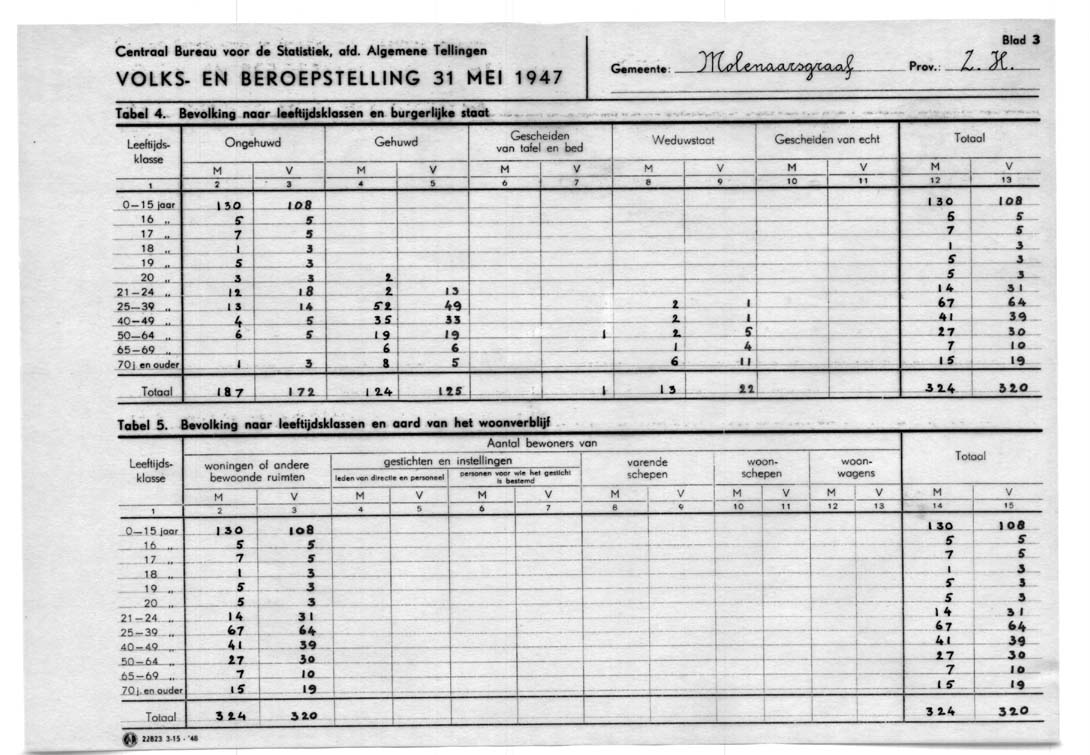 Blad 3
Centraal Bureau voor de Statistiek, afd. Algemene Tellingen
VOLKS- EN BEROEPSTELLING 31 MEI 1947
Gemeente: Molenaarsgraaf Prov.: Z. H.
Tabel 4. Bevolking naar leeftijdsklassen en burgerlijke staat
Leeftijds-klasse Ongehuwd Gehuwd Gescheiden van tafel en bed Weduwstaat Gescheiden van echt Totaal
M V M V M V M V M V M V
1 2 3 4 5 6 7 8 9 10 11 12 13
0—15 jaar 130 108 130 108
16 „ 5 5 5 5
17 „ 7 5 7 5
18 „ 1 3 1 3
19 „ 5 3 5 3
20 „ 3 3 2 5 3
21—24 „ 12 18 2 13 14 31
25—39 „ 13 14 52 49 2 1 67 64
40—49 „ 4 5 35 33 2 1 41 39
50—64 „ 6 5 19 19 1 2 5 27 30
65—69 „ 6 6 1 4 7 10
70 j. en ouder 1 3 8 5 6 11 15 19
Totaal 187 172 124 125 1 13 22 324 320
Tabel 5. Bevolking naar leeftijdsklassen en aard van het woonverblijf
Aantal bewoners van
Leeftijds-klasse woningen of andere bewoonde ruimten gestichten en instellingen varende schepen woon-schepen woon-wagens Totaal
leden van directie en personeel personen voor wie het gesticht is bestemd
M V M V M V M V M V M V M V
1 2 3 4 5 6 7 8 9 10 11 12 13 14 15
0—15 jaar 130 108 130 108
16 „ 5 5 5 5
17 „ 7 5 7 5
18 „ 1 3 1 3
19 „ 5 3 5 3
20 „ 5 3 5 3
21—24 „ 14 31 14 31
25—39 „ 67 64 67 64
40—49 „ 41 39 41 39
50—64 „ 27 30 27 30
65—69 „ 7 10 7 10
70 j. en ouder 15 19 15 19
Totaal 324 320 324 320
22823 3-15 - '48